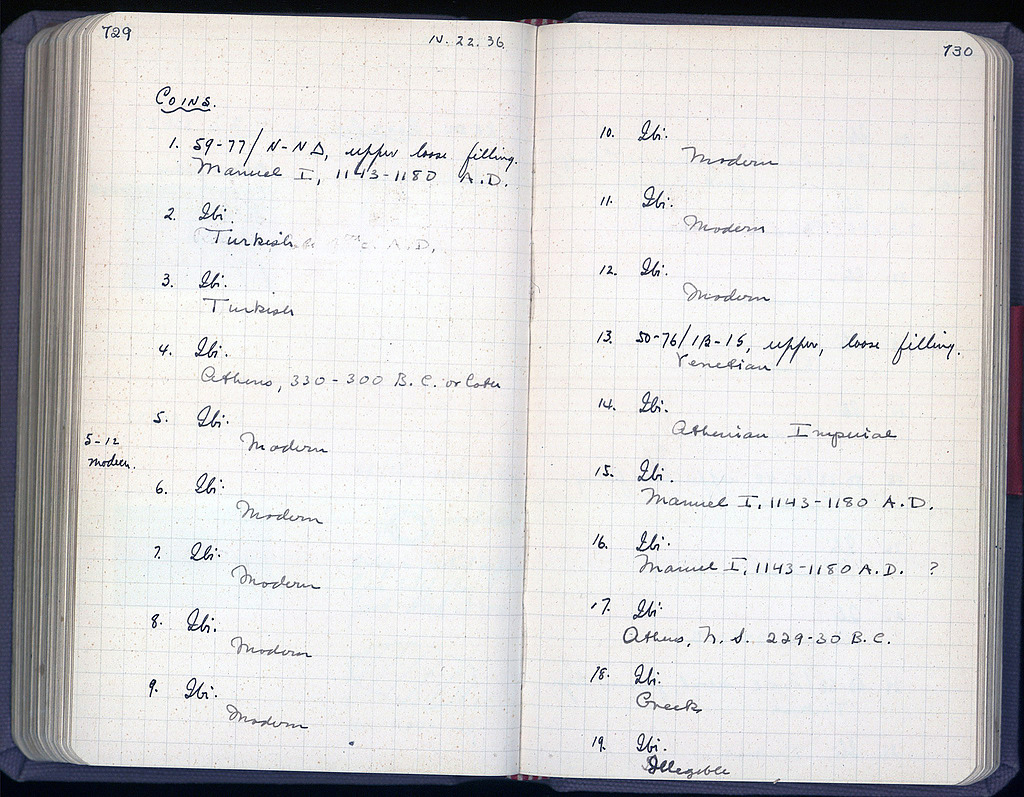 729
IV. 22. 36.
COINS.
1. 59-77/ N-NΔ, upper loose filling.
Manuel I, 1143-1180 A.D.
2. Ibi.
Turkish A.D.
3. Ibi.
Turkish
4. Ibi.
Athens, 330-300 B.C. or later
5-12
modern.
5. Ibi.
Modern
6. Ibi.
Modern
7. Ibi.
Modern
8. Ibi.
Modern
9. Ibi.
Modern
730
10. Ibi.
Modern
11. Ibi.
Modern
12. Ibi.
Modern
13. 50-76/ upper, loose filling.
Venetian
14. Ibi.
Athenian Imperial
15. Ibi.
Manuel I, 1143-1180 A.D.
16. Ibi.
Manuel I, 1143-1180 A.D. ?
17. Ibi.
Athens, N.S. 229-30 B.C.
18. Ibi.
Greek
19. Ibi.
Illegible